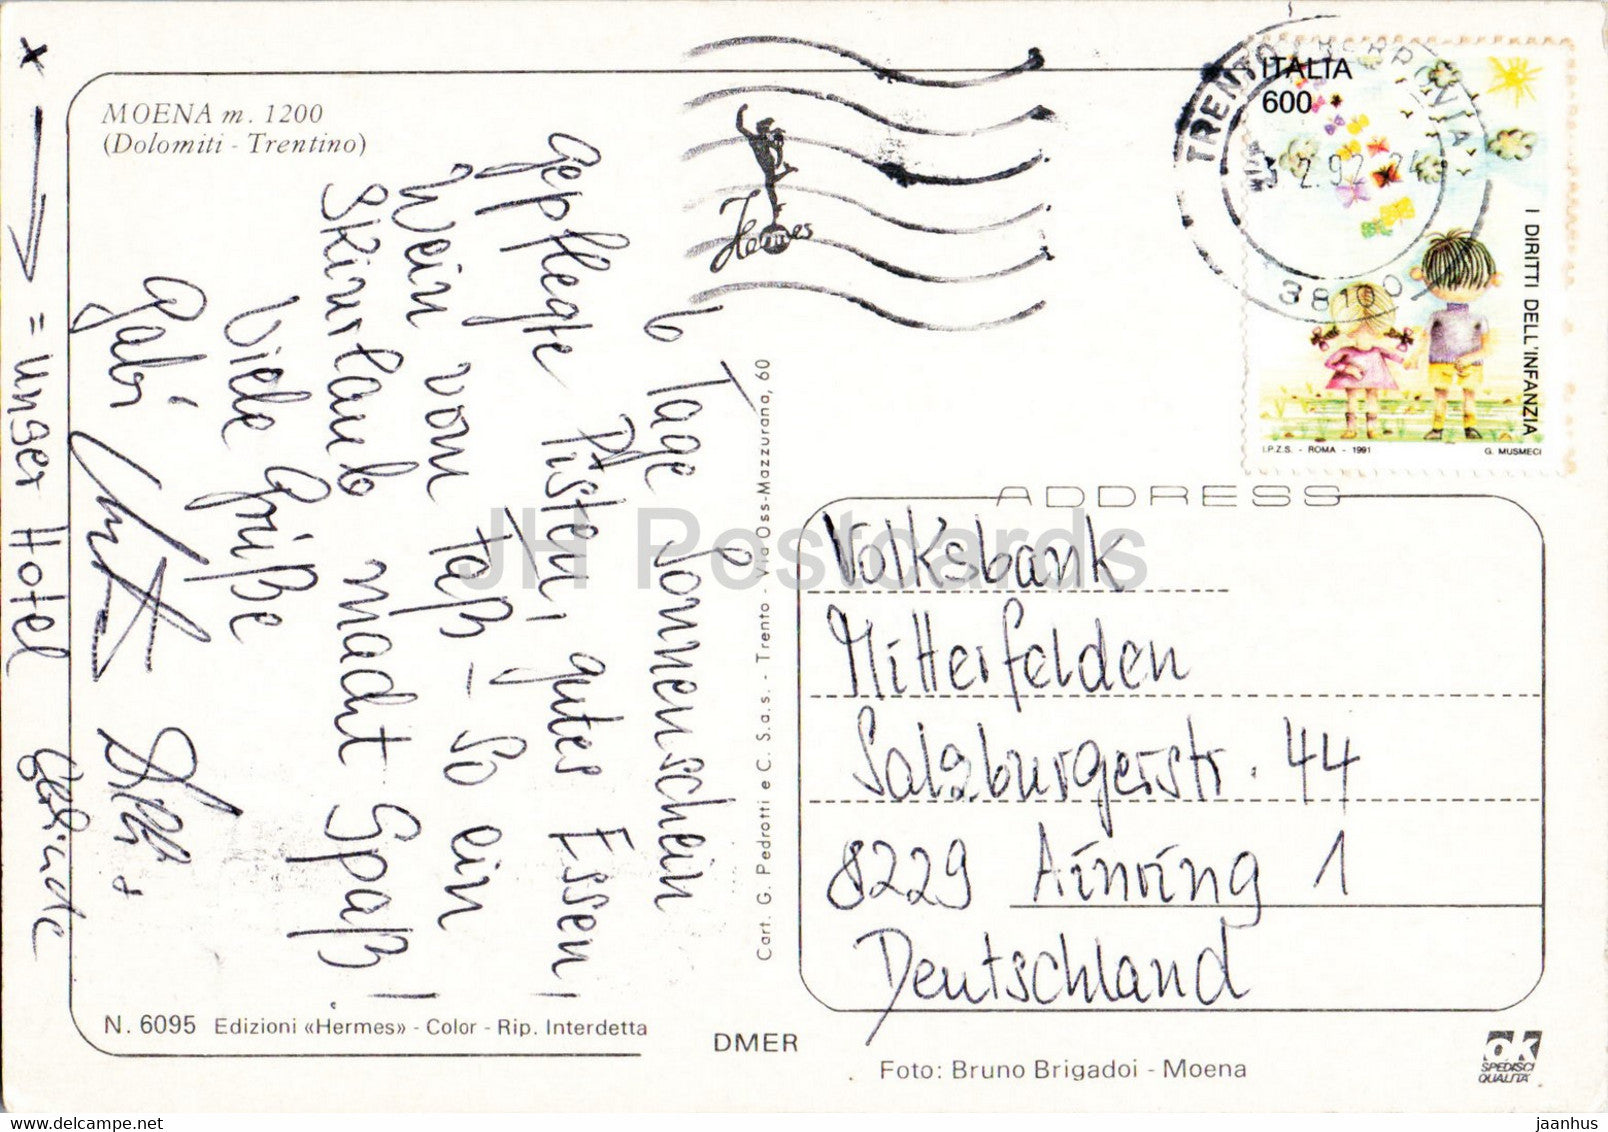 MOENA m. 1200
(Dolomiti - Trentino)
6 Tage Sonnenschein
gepflegte Pisten, gutes Essen,
Wein vom Faß - So ein
Skiurlaub macht Spaß!
Viele Grüße
Gabi
x → = unser Hotel
N. 6095 Edizioni «Hermes» - Color - Rip. Interdetta
Cart. G. Pedrotti e C. S.a.s. - Trento - Via Oss-Mazzurana, 60
Hermes
TRENTO FERROVIA
2.92.24
38100
ITALIA
600
I DIRITTI DELL'INFANZIA
I.P.Z.S. - ROMA - 1991
G. MUSMECI
ADDRESS
Volksbank
Mitterfelden
Salzburgerstr. 44
8229 Ainring 1
Deutschland
DMER
Foto: Bruno Brigadoi - Moena
ok
SPEDISCI
QUALITÀ
JH Postcards
jaanhus
www.delcampe.net